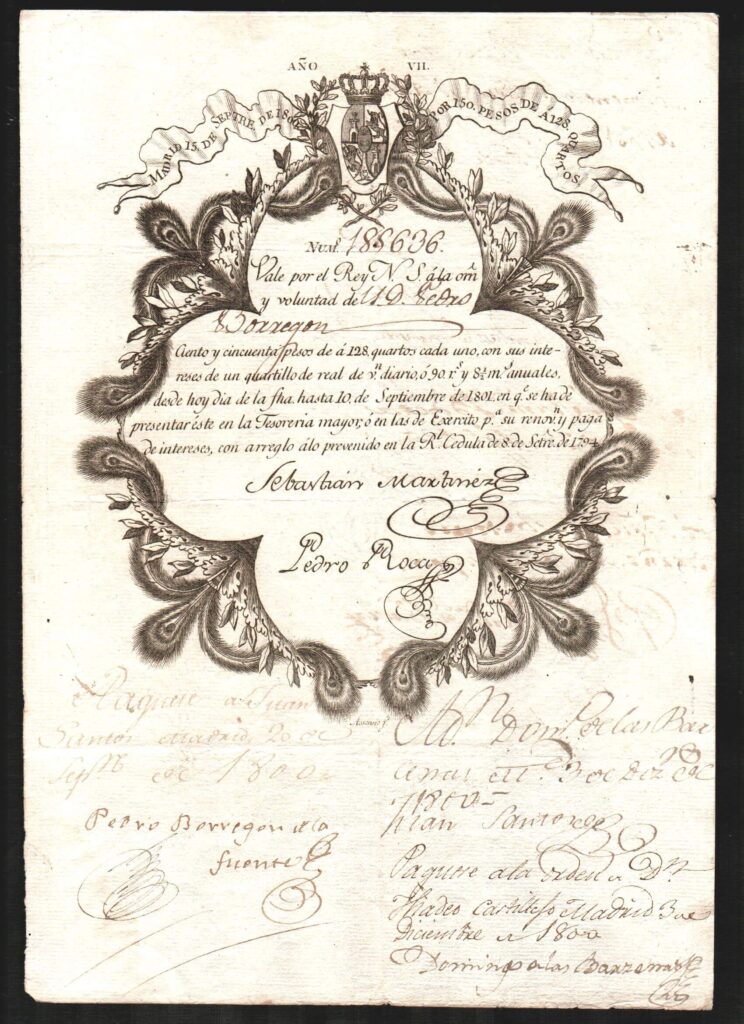 AÑO VII.
MADRID 15. DE SEPTRE DE 18
POR 150. PESOS DE A 128. QUARTOS
Num. 188636.
Vale por el Rey N. S. á la orn̄
y voluntad de D. Pedro
Borregon
Ciento y cincuenta pesos de á 128. quartos cada uno, con sus inte-
reses de un quartillo de real de vn̄ diario, ó 90 rs. y mrs. anuales,
desde hoy dia de la fha. hasta 10. de Septiembre de 1801. en qe. se ha de
presentar éste en la Tesoreria mayor, ó en las de Exercito pa. su renovn. y paga
de intereses, con arreglo á lo prevenido en la Rl. Cedula de 8. de Setre. de 1794.
Sebastián Martinez
Pedro Roca
Paguese a Juan
Santos Madrid 20 de
Sepre de 1800
Pedro Borregon de la
fuente
A Dn. Domo. de las Bar
cenas 3 de Dizre de
1800
Juan Santos
Paguese a la orden de Dn.
Thadeo Castillejo Madrid 3 de
Diciembre de 1800
Domingo de las Barzenas